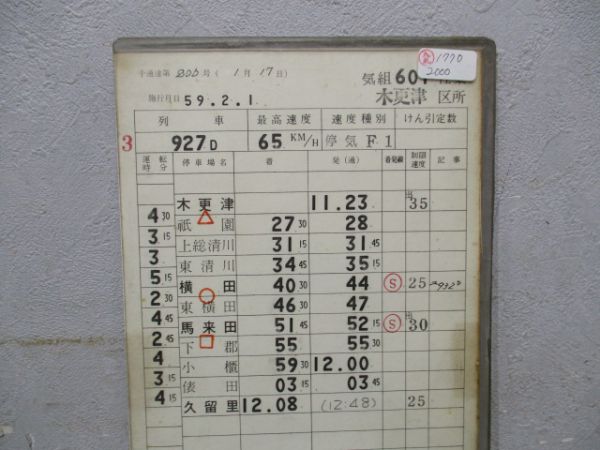 千運達第 200 号 ( 1 月 17 日)
気組 601
施行月日 59.2.1. 木更津 区所
1770
2000
列 車 最高速度 速度種別 けん引定数
3 927D 65 KM/H 停気 F1
運転時分 停車場名 着 発(通) 着発線 制限速度 記事
木更津 11.23 出35
4 30
祇園 27 30 28
3 15
上総清川 31 15 31 45
3
東清川 34 45 35 15
5 15
横田 40 30 44 S 25 932D
2 30
東横田 46 30 47
4 45
馬来田 51 45 52 15 S 出30
2 45
下郡 55 55 30
4
小櫃 59 30 12.00
3 15
俵田 03 15 03 45
4 15
久留里 12.08 (12:48) 25